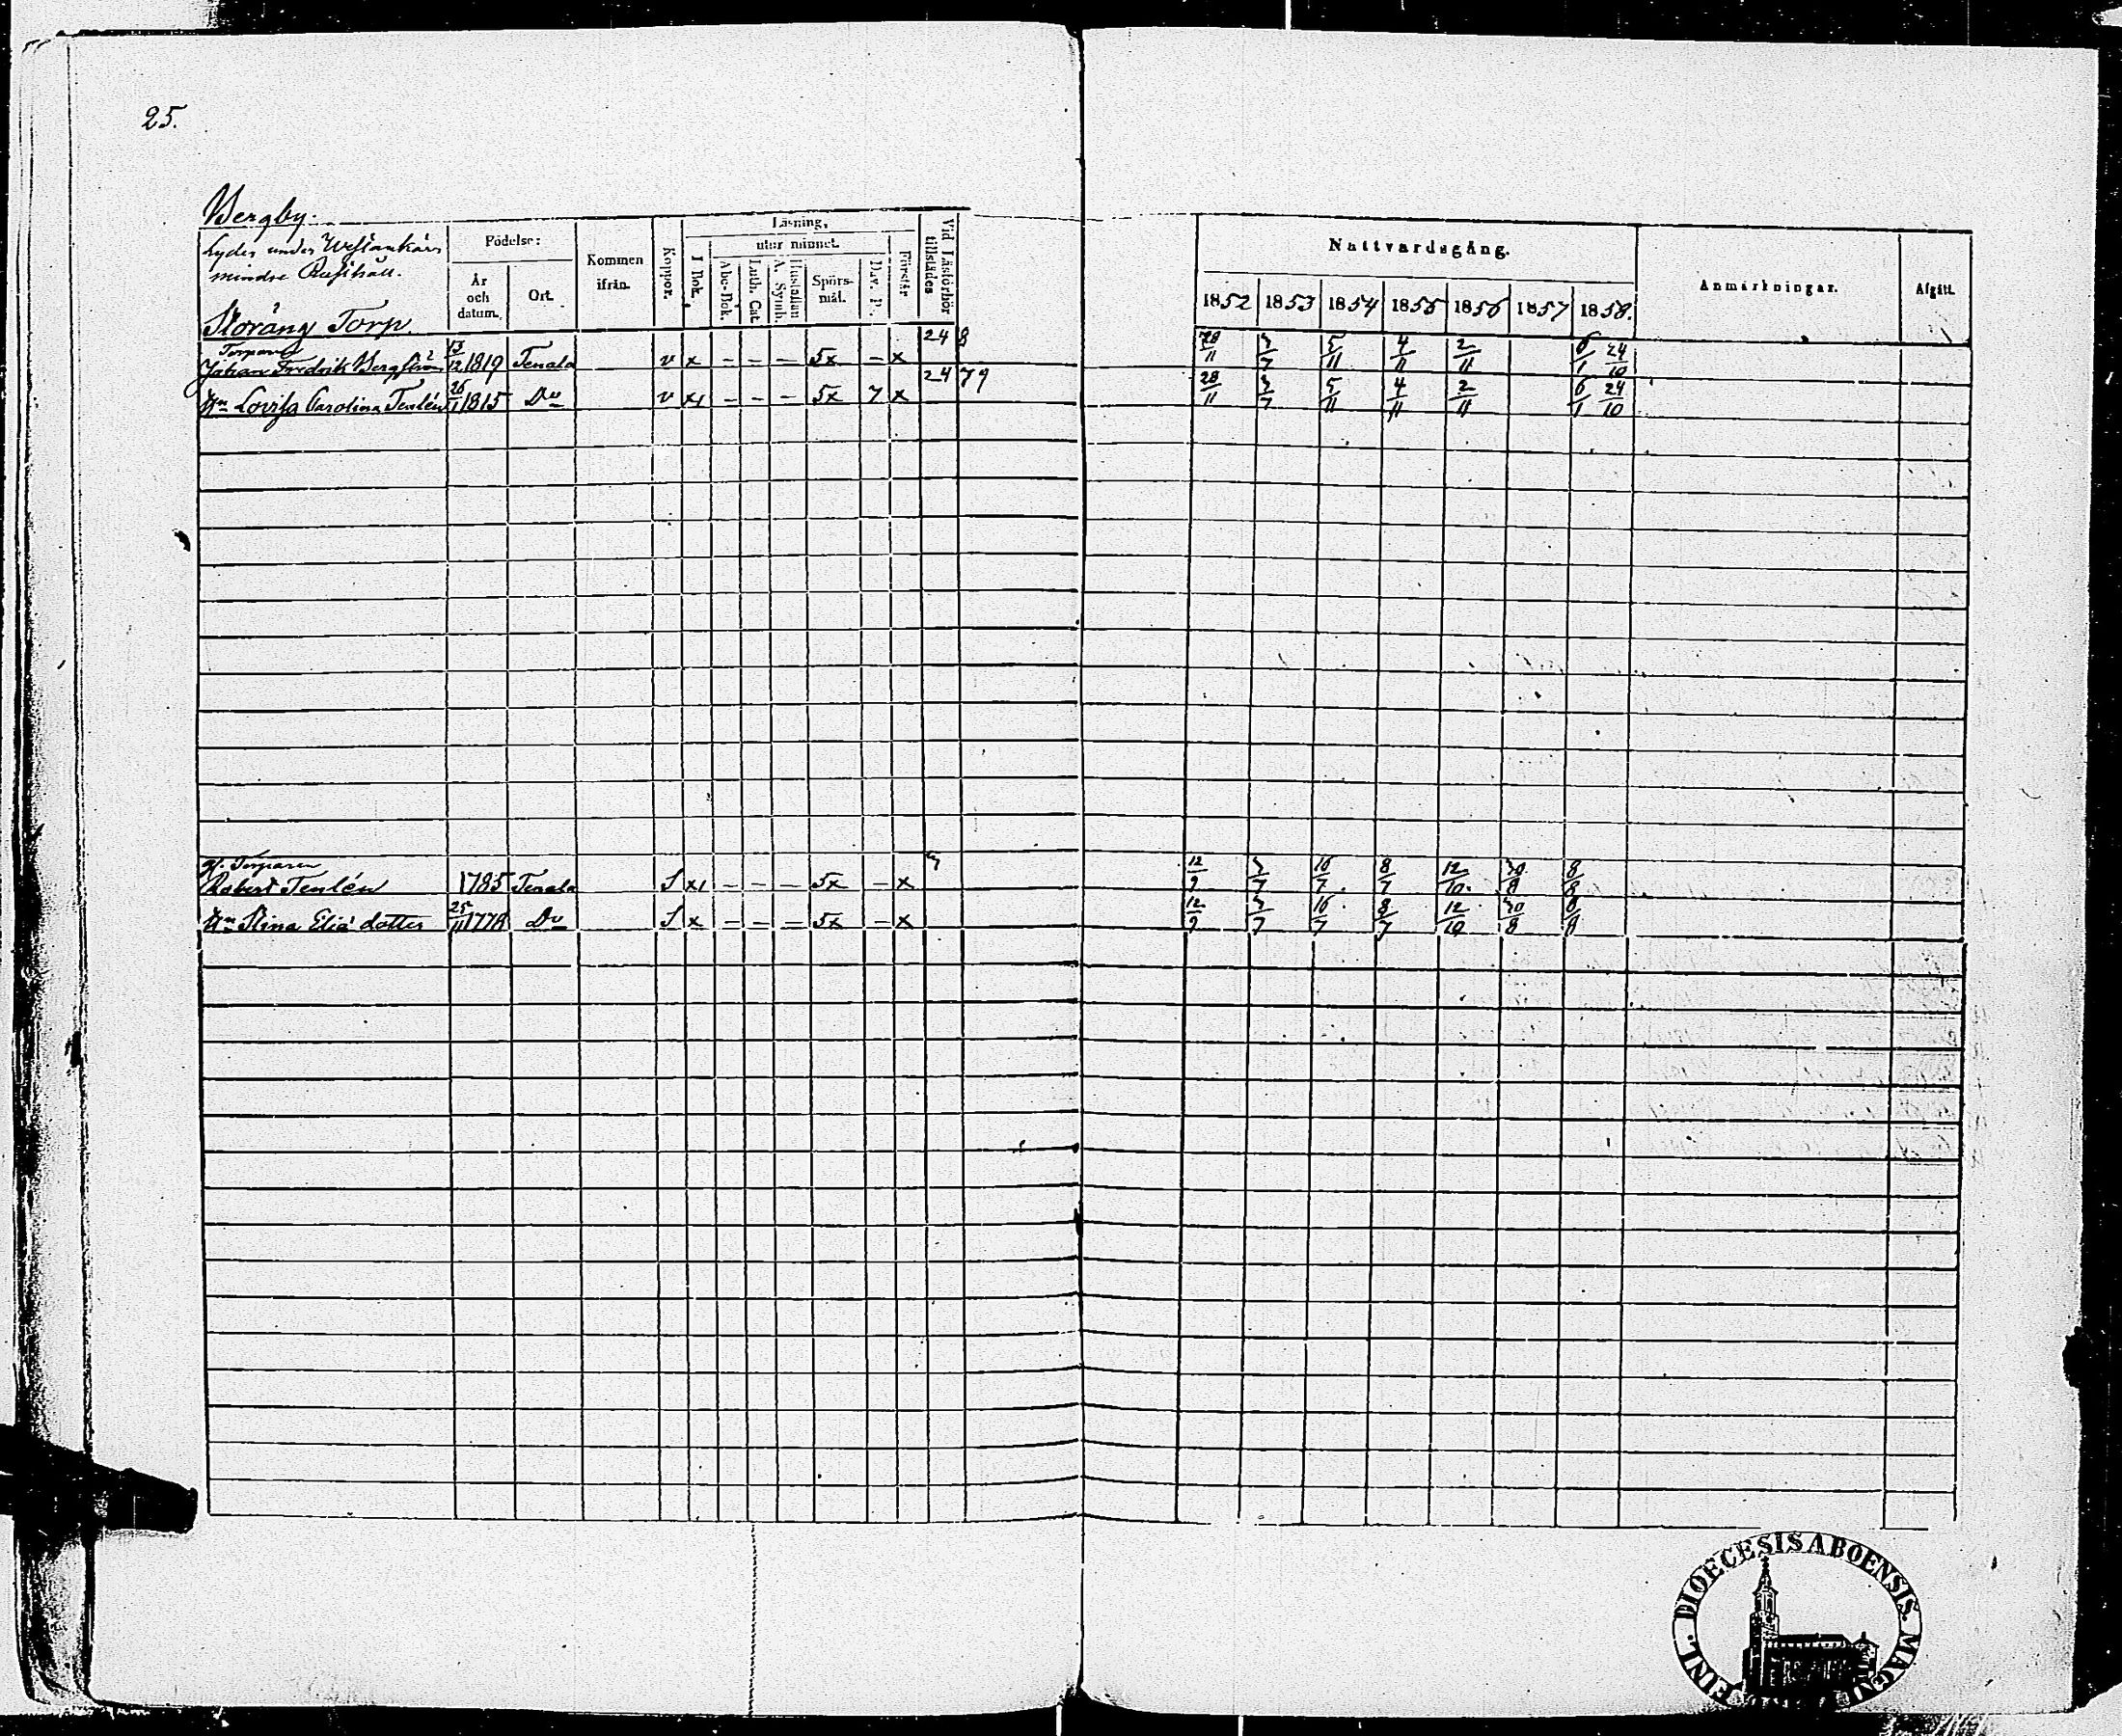 25.
Bergby.
Lyder under Westankärr
mindre Rusthåll.
Storäng Torp.
Födelse:
År och datum.
Ort.
Kommen ifrån.
Koppor.
Läsning,
I Bok.
utur minnet.
Abc-Bok.
Luth. Cat.
A. Symb.
Hustaflan
Spörs-mål.
Dav. P.
Förstår
Vid Läsförhör tillstädes
Nattvardsgång.
1852 1853 1854 1855 1856 1857 1858.
Anmärkningar.
Afgått.
Torparen
Johan Fredrik Bergström 13/12 1819 Tenala v x – – – 5x – x 24 8 28/11 3/7 5/11 4/11 2/11 6/1 24/10
Hn Lovisa Carolina Tenlén 26/1 1815 Do v x – – – 5x 7 x 24 79 28/11 3/7 5/11 4/11 2/11 6/1 24/10
gf. Torparen
Robert Tenlén 1785 Tenala S x – – – 5x – x 12/9 3/7 16/7 8/7 12/10 30/8 8/8
Hn Stina Eliæ dotter 25/11 1778 Do S x – – – 5x – x 12/9 3/7 16/7 8/7 12/10 30/8 8/8
FINL. DIOECESIS ABOENSIS. MAGNI